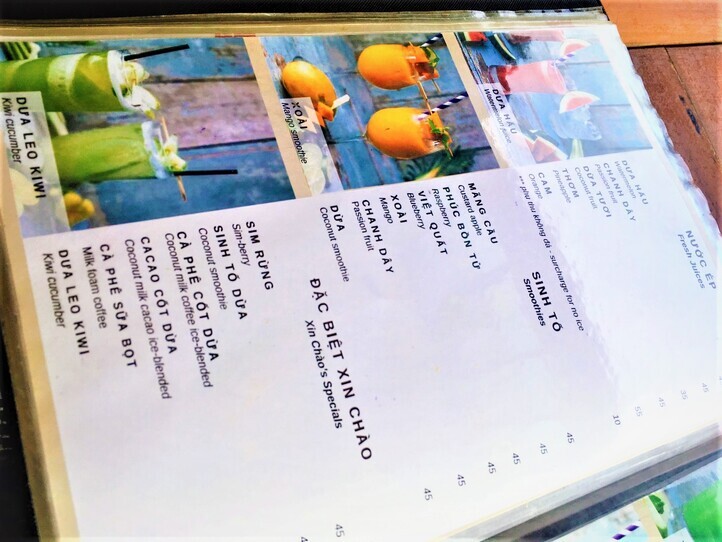 DƯA HẤU
Watermelon juice
XOÀI
Mango smoothie
DƯA LEO KIWI
Kiwi cucumber
NƯỚC ÉP
Fresh Juices
DƯA HẤU
Watermelon
CHANH DÂY
Passion fruit
DỪA TƯƠI
Coconut fruit
THƠM
Pineapple
CAM
Orange
** phụ thu không đá - surcharge for no ice
45
35
45
55
10
SINH TỐ
Smoothies
MÃNG CẦU
Custard apple
PHÚC BỒN TỬ
Raspberry
VIỆT QUẤT
Blueberry
XOÀI
Mango
CHANH DÂY
Passion fruit
DỪA
Coconut smoothie
45
45
45
45
45
45
ĐẶC BIỆT XIN CHÀO
Xin Chào's Specials
SIM RỪNG
Sim-berry
SINH TỐ DỪA
Coconut smoothie
CÀ PHÊ CỐT DỪA
Coconut milk coffee ice-blended
CACAO CỐT DỪA
Coconut milk cacao ice-blended
CÀ PHÊ SỮA BỌT
Milk foam coffee
DƯA LEO KIWI
Kiwi cucumber
45